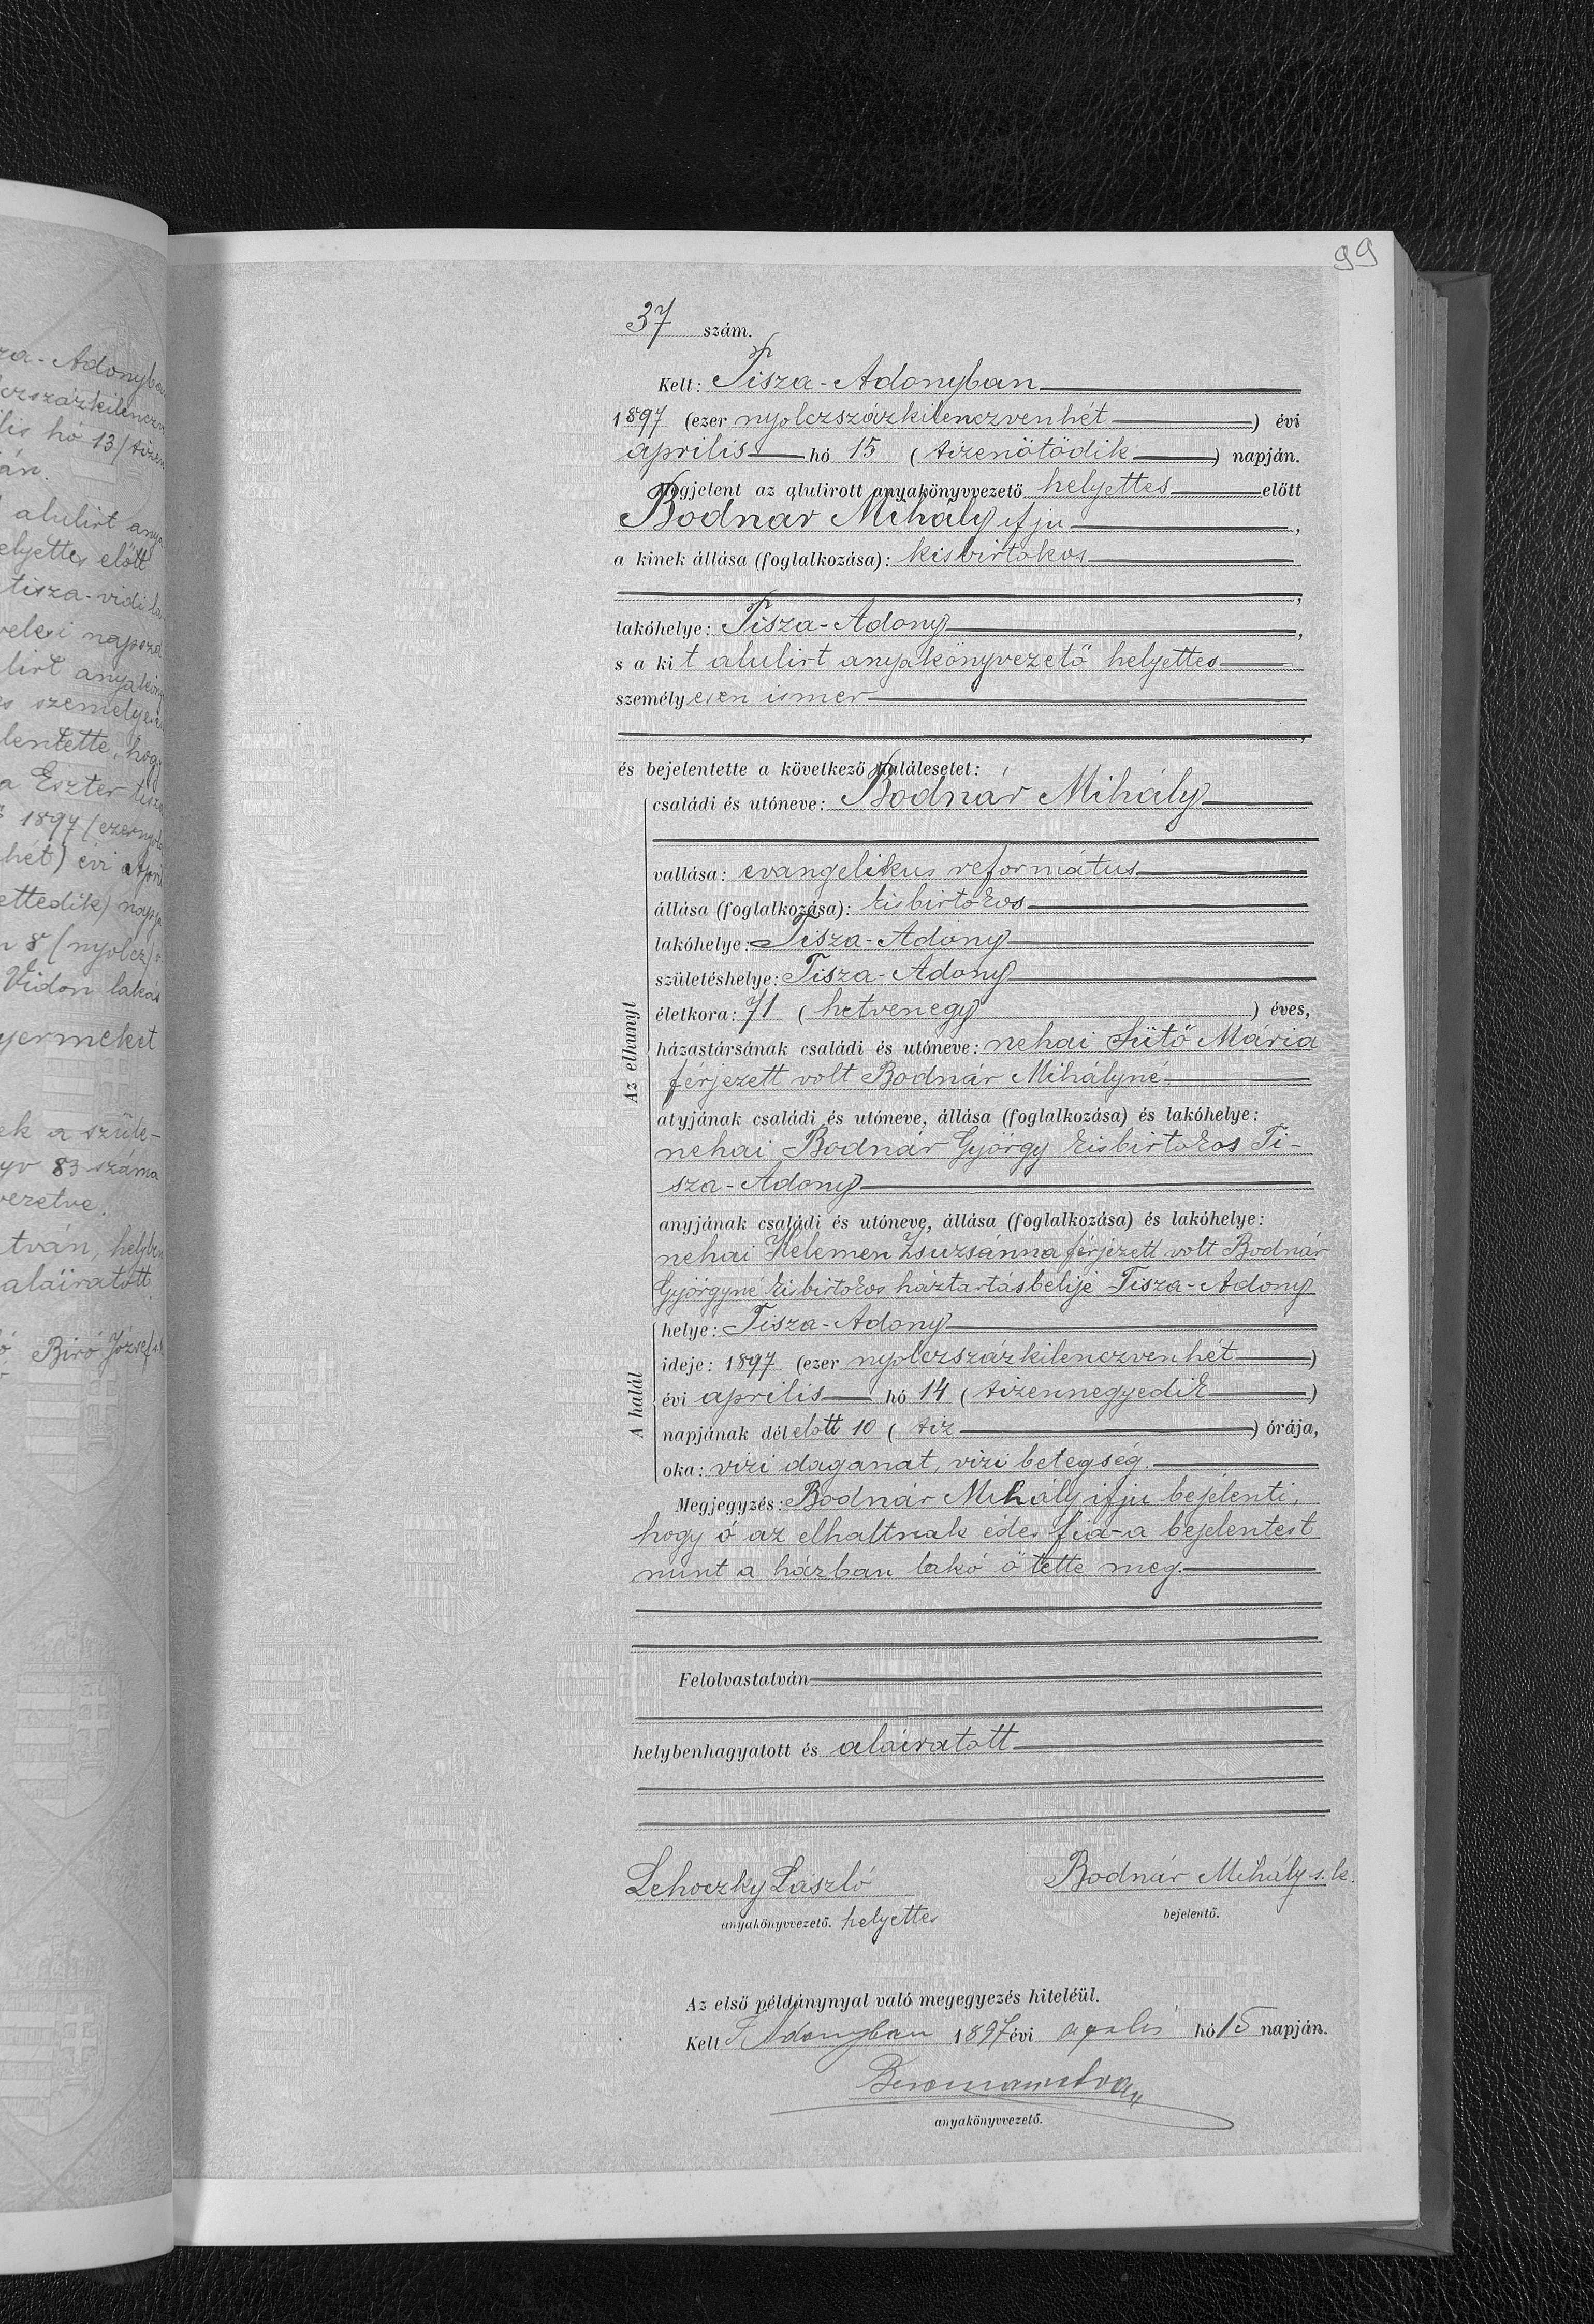 99
za-Adonyba
lis hó 13/tizen
án.
alulirt anya
elyettes előtt
tisza-vidi
lirt anyakönyv
s személyese
lentette, hogy
a Eszter
1897/ezernyol
hét) évi Apri
ettedik) napja
8 (nyolcz)
Vidon lakás
yermeket
ek a szüle-
yv 83 száma
vezetve.
tván, helybe
aláiratott.
Biró József
37 szám.
Kelt: Tisza-Adonyban
1897 (ezer nyolczszázkilenczvenhét) évi
április hó 15 (tizenötödik) napján.
Megjelent az alulirott anyakönyvvezető helyettes előtt
Bodnár Mihály ifju,
a kinek állása (foglalkozása): kisbirtokos
lakóhelye: Tisza-Adony,
s a kit alulirt anyakönyvezető helyettes
személyesen ismer
és bejelentette a következő halálesetet:
Az elhunyt
családi és utóneve: Bodnár Mihály
vallása: evangelikus református
állása (foglalkozása): kisbirtokos
lakóhelye: Tisza-Adony
születéshelye: Tisza-Adony
életkora: 71 (hetvenegy) éves,
házastársának családi és utóneve: nehai Sütő Mária
férjezett volt Bodnár Mihályné.
atyjának családi és utóneve, állása (foglalkozása) és lakóhelye:
nehai Bodnár György kisbirtokos Ti-
sza-Adony
anyjának családi és utóneve, állása (foglalkozása) és lakóhelye:
nehai Kelemen Zsuzsánna férjezett volt Bodnár
Györgyné kisbirtokos háztartásbelije Tisza-Adony
A halál
helye: Tisza-Adony
ideje: 1897 (ezer nyolczszázkilenczvenhét)
évi április hó 14 (tizennegyedik)
napjának délelőtt 10 (tiz) órája,
oka: vizi daganat, vizi betegség.
Megjegyzés: Bodnár Mihály ifju bejelenti,
hogy ő az elhaltnak édes fia-a bejelentést
mint a házban lakó ő tette meg.
Felolvastatván
helybenhagyatott és aláiratott
Lehoczky László
Bodnár Mihály s. k.
anyakönyvvezető. helyettes
bejelentő.
Az első példánynyal való megegyezés hiteléül.
Kelt T Adonyban 1897 évi április hó 15 napján.
anyakönyvvezető.